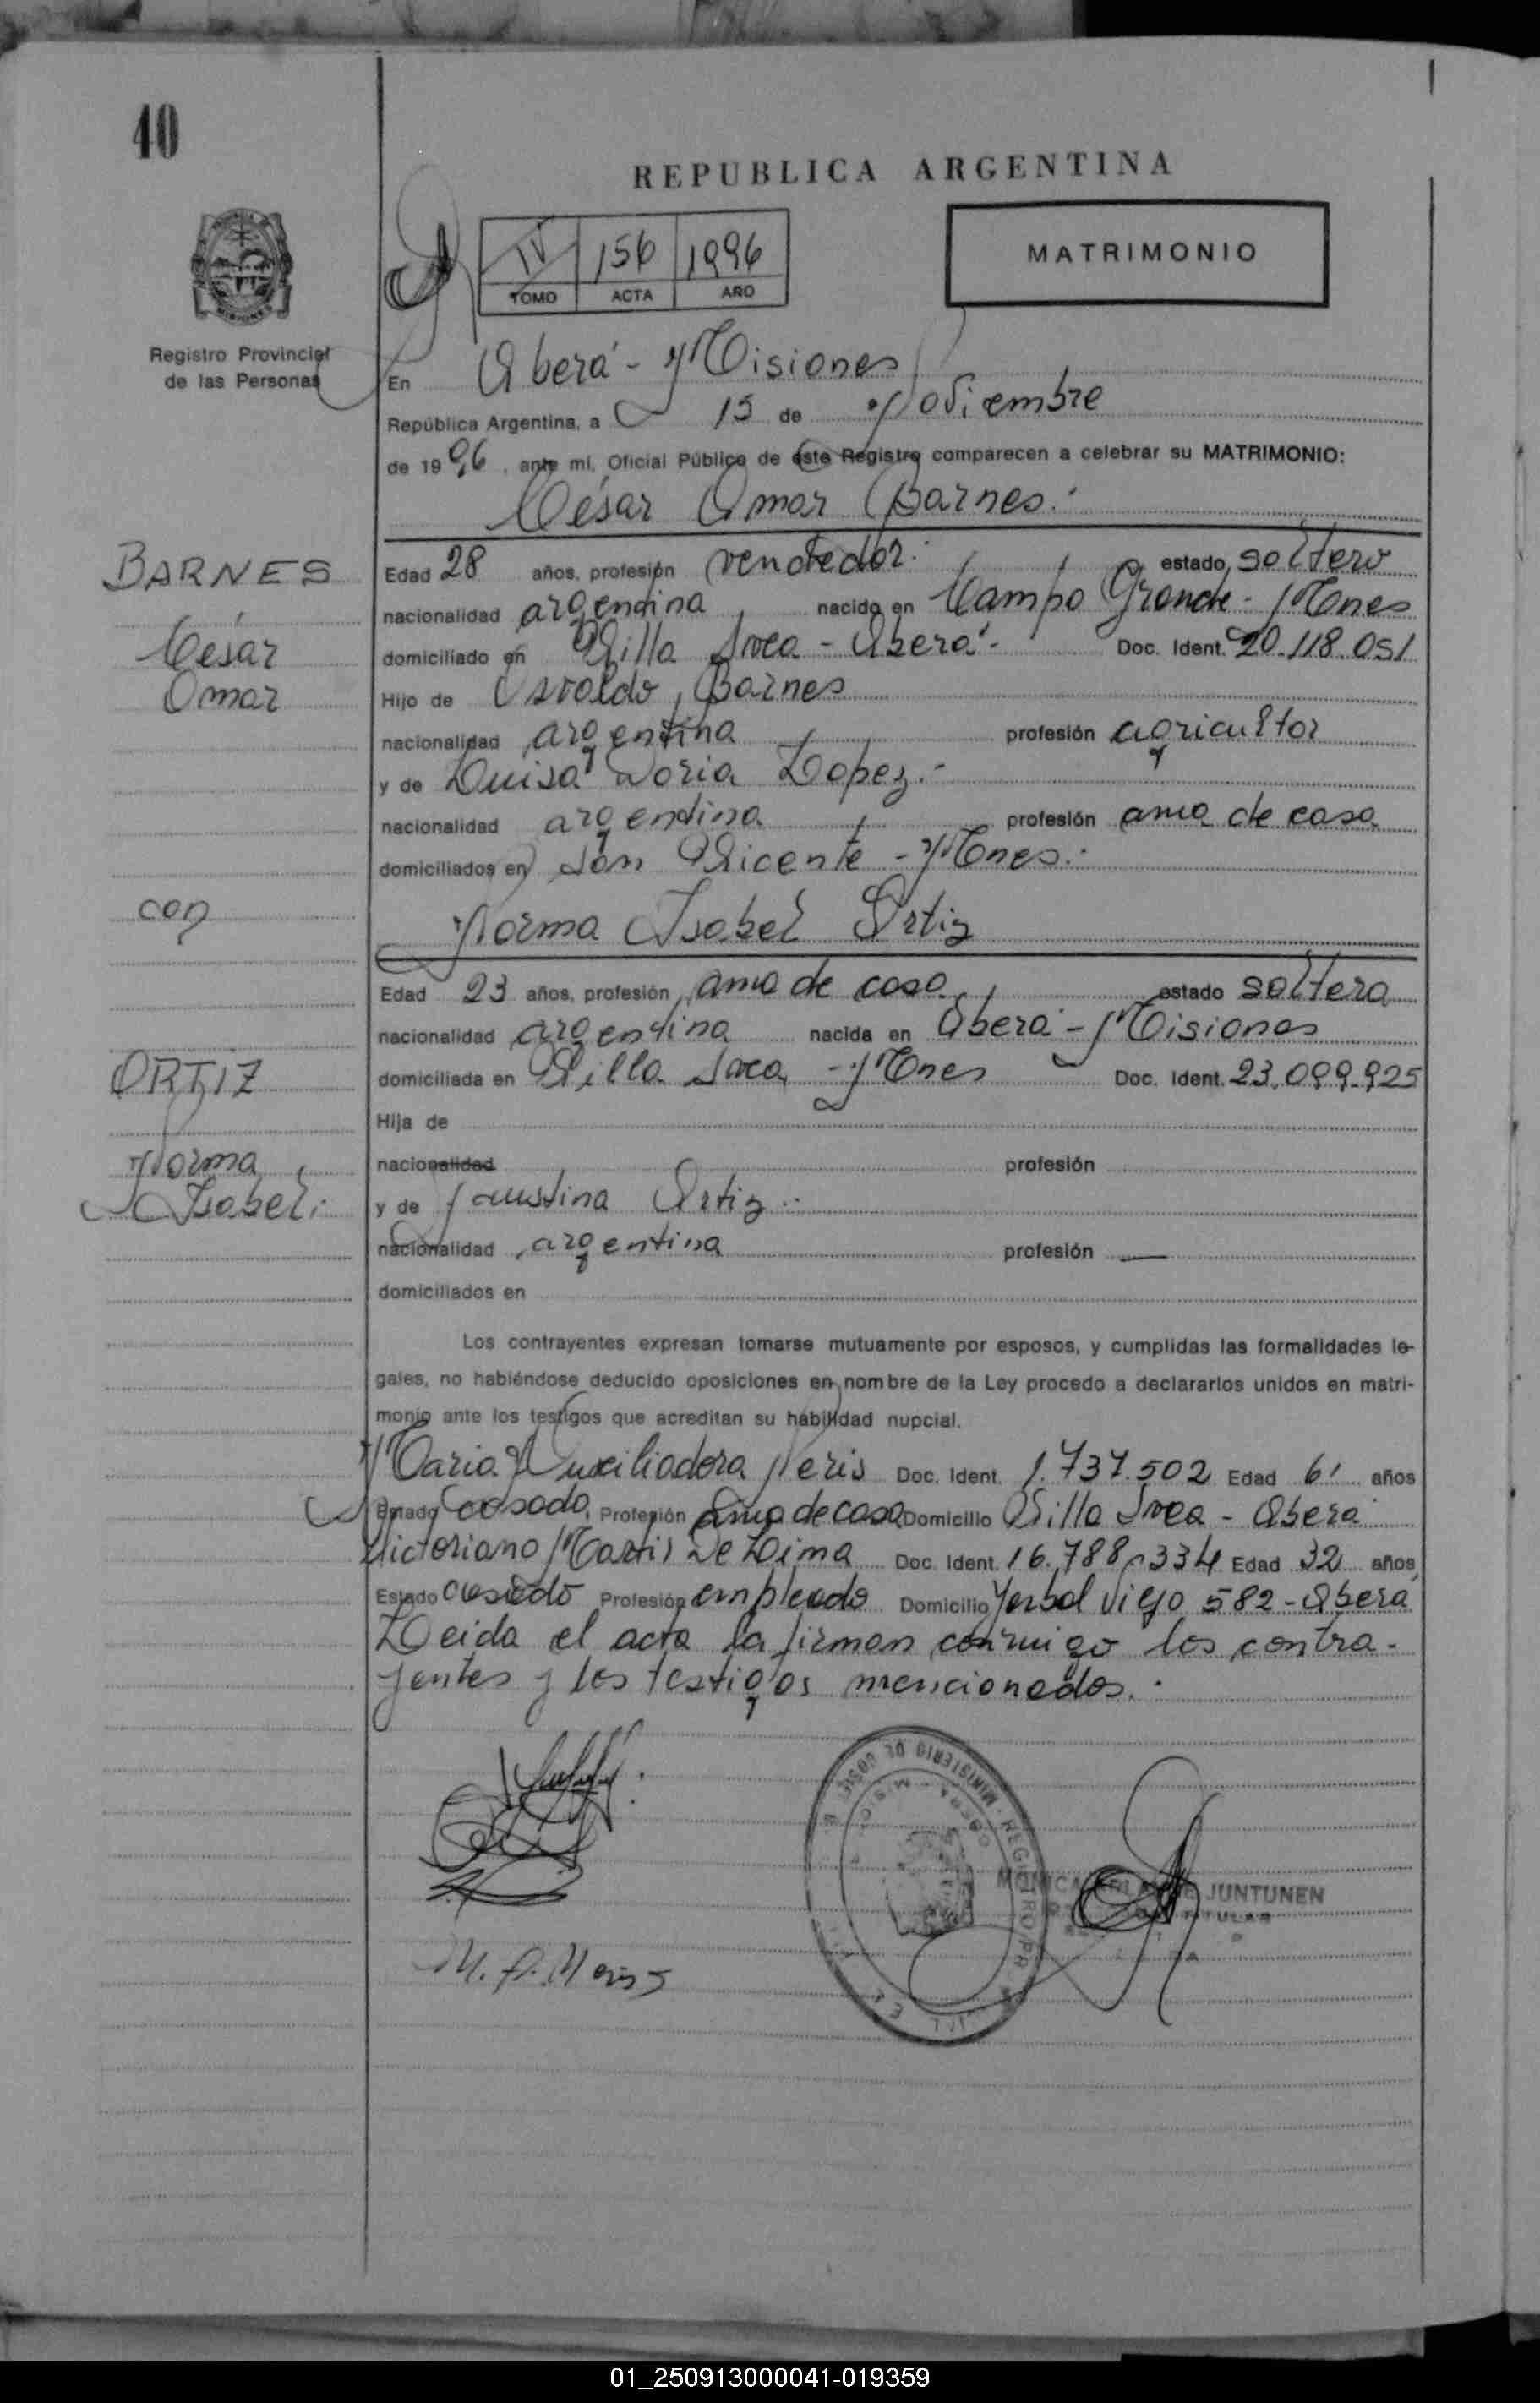 40
REPUBLICA ARGENTINA
IV 156 1996
TOMO ACTA AÑO
MATRIMONIO
Registro Provincial
de las Personas
En Oberá - Misiones
República Argentina, a 15 de Noviembre
de 1996, ante mí, Oficial Público de este Registro comparecen a celebrar su MATRIMONIO:
César Omar Barnes.
BARNES
César
Omar
Edad 28 años, profesión vendedor. estado soltero
nacionalidad argentina nacido en Campo Grande - Mnes
domiciliado en Villa Svea - Oberá - Doc. Ident. 20.118.051
Hijo de Osvaldo Barnes
nacionalidad argentina profesión agricultor
y de Luisa Doria Lopez.-
nacionalidad argentina profesión ama de casa
domiciliados en San Vicente - Mnes.
con
Norma Isabel Ortiz
Edad 23 años, profesión ama de casa estado soltera
nacionalidad argentina nacida en Oberá - Misiones
ORTIZ
Norma
Isabel.
domiciliada en Villa Svea - Mnes Doc. Ident. 23.099.925
Hija de
nacionalidad profesión
y de Faustina Ortiz
nacionalidad argentina profesión —
domiciliados en
Los contrayentes expresan tomarse mutuamente por esposos, y cumplidas las formalidades le-
gales, no habiéndose deducido oposiciones en nombre de la Ley procedo a declararlos unidos en matri-
monio ante los testigos que acreditan su habilidad nupcial.
Maria Auxiliadora Neris Doc. Ident. 1.737.502 Edad 61 años
Estado casada Profesión ama de casa Domicilio Villa Svea - Oberá
Victoriano Martin De Lima Doc. Ident. 16.788.334 Edad 32 años
Estado casado Profesión empleado Domicilio Yerbal Viejo 582 - Oberá
Leida el acta la firman conmigo los contra-
yentes y los testigos mencionados.
MINISTERIO DE REGISTRO
JUNTUNEN
TITULAR
01_250913000041-019359